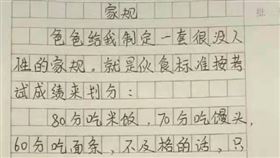 家规
爸爸给我制定一套很没人
性的家规。就是伙食标准按考
试成绩来划分：
80分吃米饭，70分吃馒头，
60分吃面条，不及格的话，只